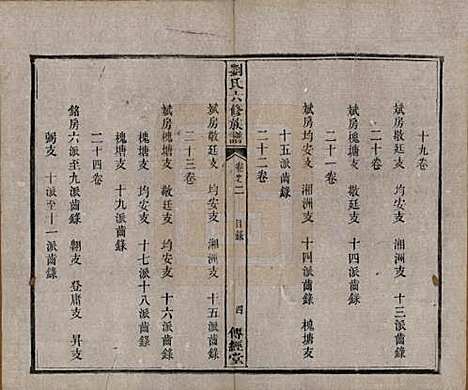 十九卷
斌房敬廷支　均安支　湘洲支　十三派齒錄
二十卷
斌房槐塘支　敬廷支　十四派齒錄
二十一卷
斌房均安支　湘洲支　十四派齒錄　槐塘支
十五派齒錄
二十二卷
劉氏六修族譜
卷之二
目錄
四
傳經堂
斌房敬廷支　均安支　湘洲支　十五派齒錄
二十三卷
斌房槐塘支　敬廷支　均安支　十六派齒錄
槐塘支　均安支　十七派十八派齒錄
槐塘支　十九派齒錄
二十四卷
銘房六派至九派齒錄　翱支　登庸支　昇支
弼支　十派至十一派齒錄